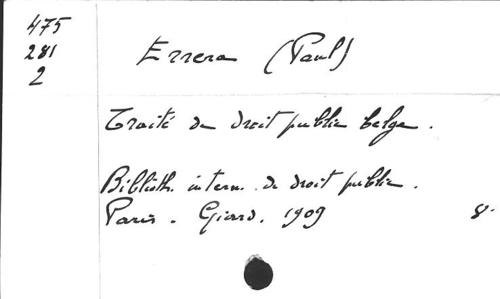 475
281
2
Errera (Paul)
Traité de droit public belge.
Biblioth. intern. de droit public.
Paris. Giard. 1909 8°